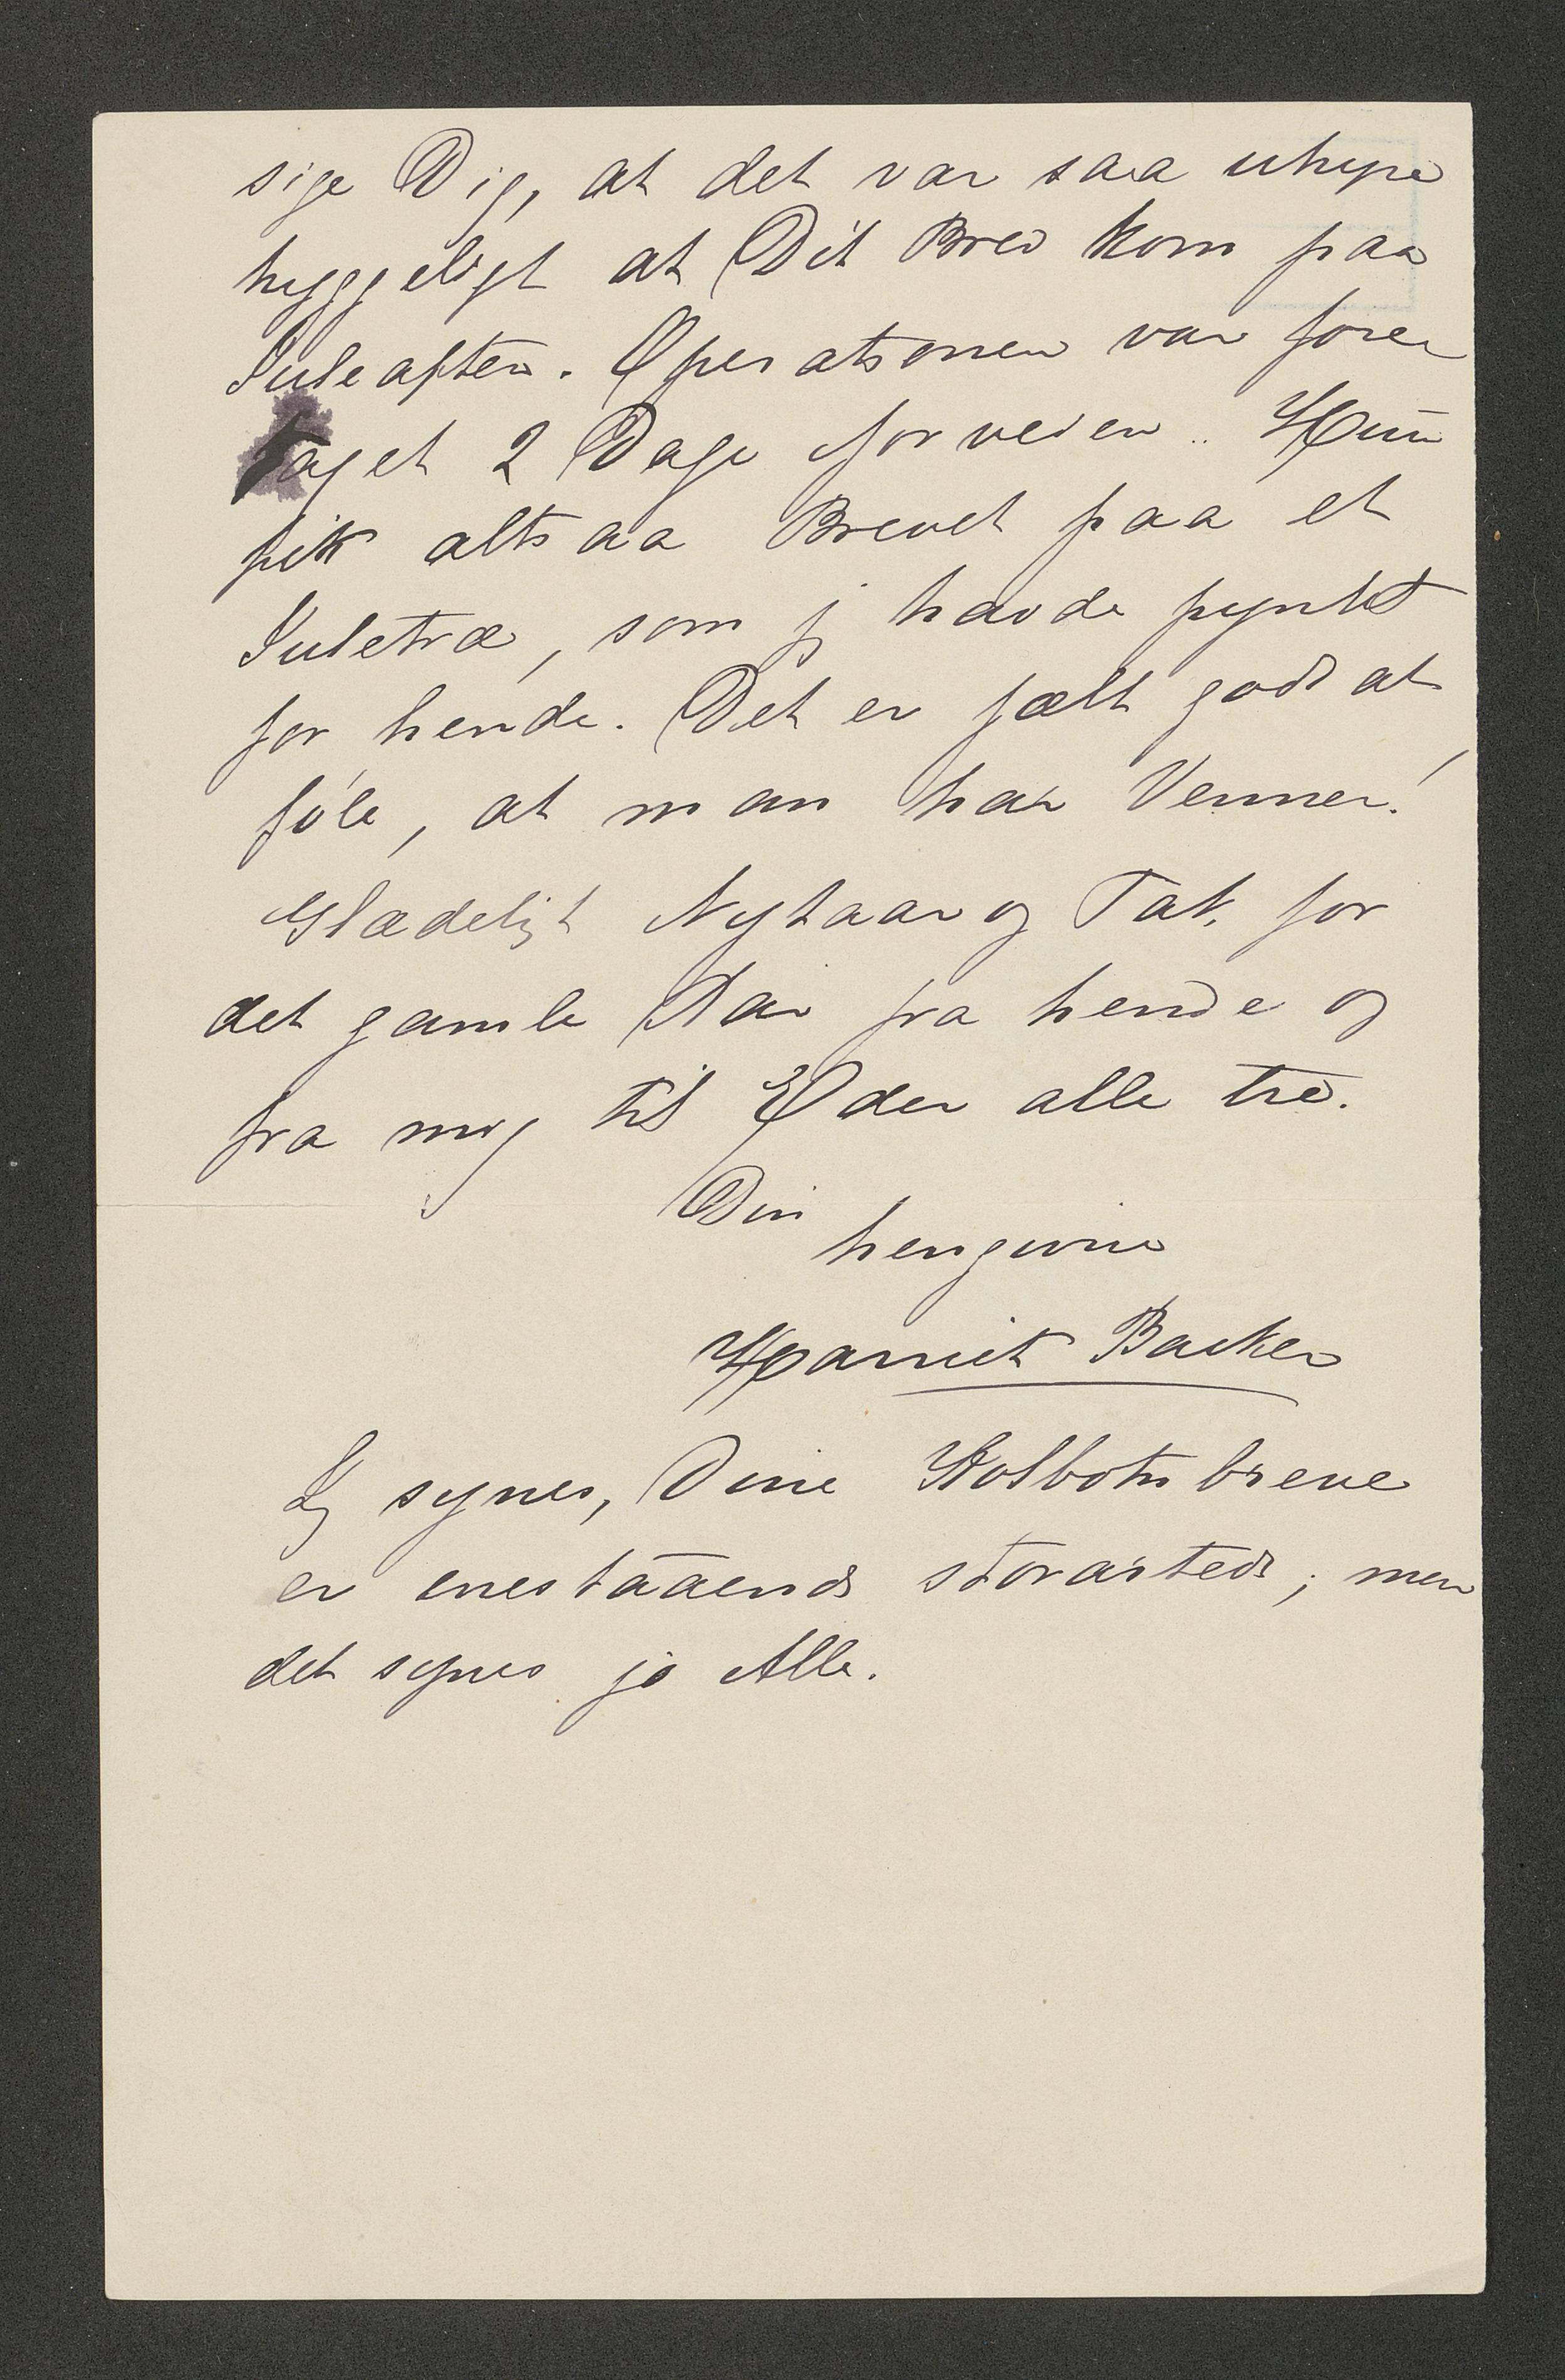 sige Dig, at det var saa uhyre
hyggeligt at Dit Brev kom paa
Juleaften. Operationen var fore
taget 2 Dage forveien. Hun
fik altsaa Brevet paa et
Juletræ, som jeg havde pyntet
for hende. Det er fælt godt at
føle, at man har Venner!
Glædeligt Nytaar og Tak for
det gamle Aar fra hende og
fra mig til Eder alle tre.
Din
hengivne
Harriet Backer
Jeg synes, Dine Kolbotnbreve
er enestaaende storartede; men
det synes jo Alle.